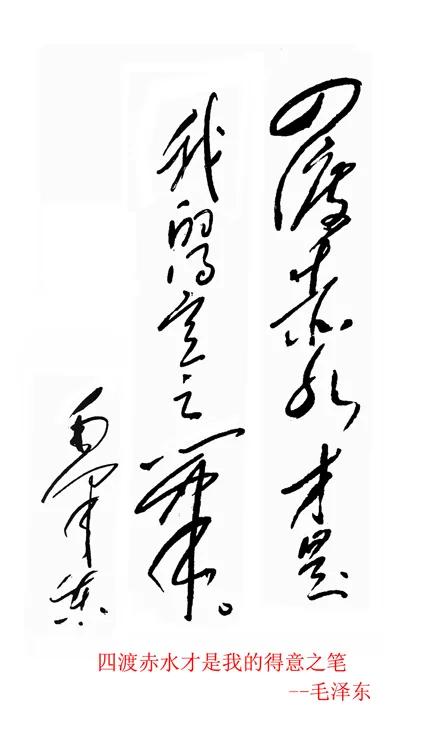 四渡赤水才是
我的得意之筆。
毛澤東
四渡赤水才是我的得意之笔
--毛泽东